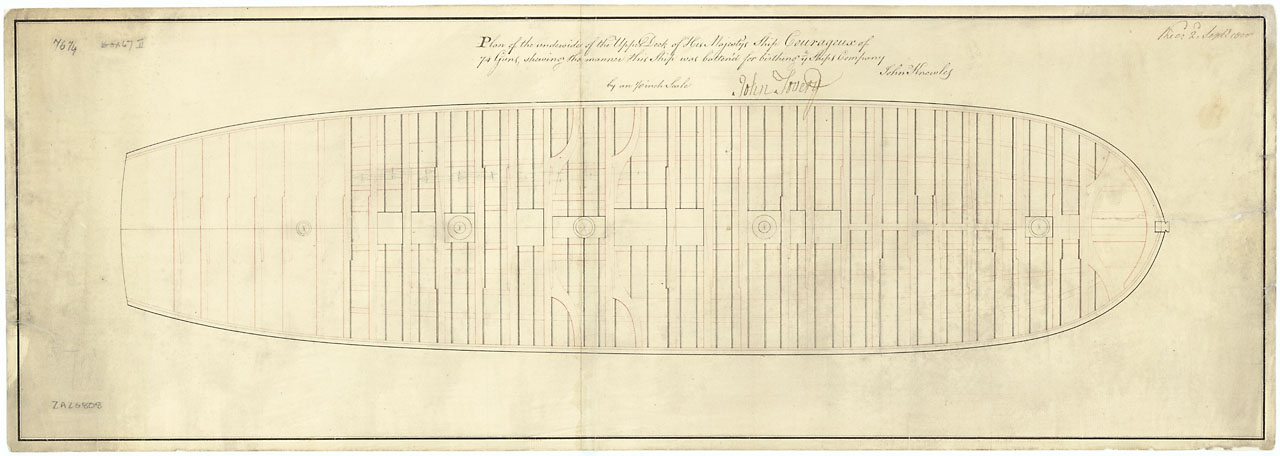 7674
Plan of the underside of the Upper Deck of His Majestys Ship Courageux of
74 Guns, shewing the manner this Ship was batten'd for birthing yͤ Ships Company
John Knowles
by an inch Scale
John Tovery
Recd 2 Sept
ZAZ